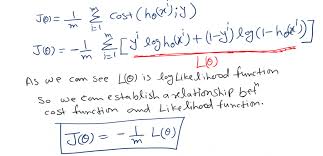 J(θ) = 1/m Σ_{i=1}^{m} cost(h_θ(x^i); y)
J(θ) = -1/m Σ_{i=1}^{m} [y^i log h_θ(x^i) + (1-y^i) log(1-h_θ(x^i))]
L(θ)
As we can see L(θ) is log Likelihood function
So we can establish a relationship betⁿ
cost function and Likelihood function.
J(θ) = -1/m L(θ)